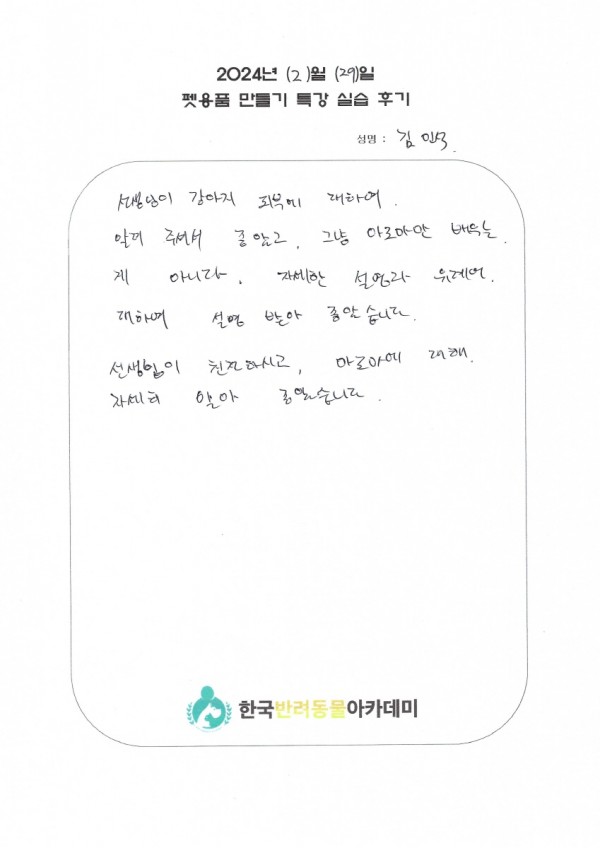 2024년 (2)월 (29)일
펫용품 만들기 특강 실습 후기
성명 : 김민석
선생님이 강아지 피부에 대하여
알려 주셔서 좋았고, 그냥 아로마만 배우는
게 아니라, 자세한 설명과
대하여 설명 받아 좋았습니다.
선생님이 친절하시고, 아로마에 대해
자세히 알아 좋았습니다.
한국반려동물아카데미